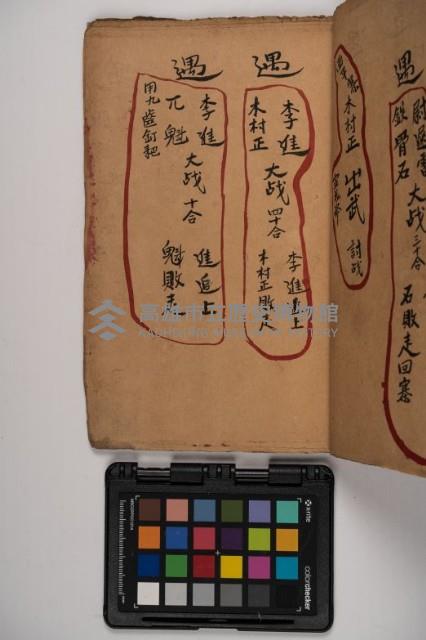 遇
尉遲雷
鉄骨石
大战三十合
石敗走回寨
木村正
出武
討战
遇
李進
木村正
大战四十合
李進追上
木村正敗走
遇
李進
兀魁
大战十合
進追上
魁敗走
用九齒釘耙
高雄市立歷史博物館
KAOHSIUNG MUSEUM OF HISTORY
x-rite
colorchecker